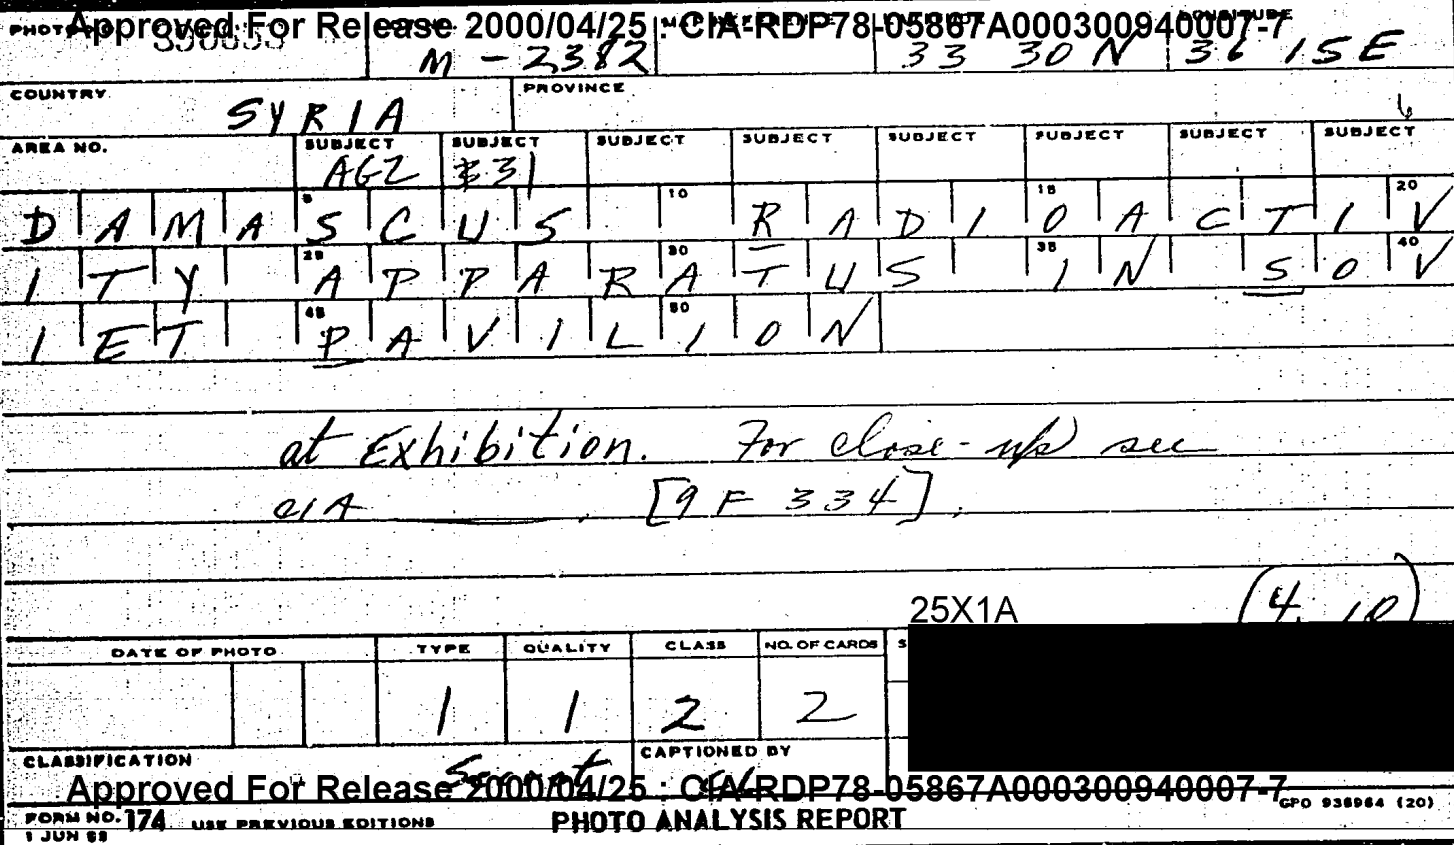 Approved For Release 2000/04/25 : CIA-RDP78-05867A000300940007-7
M-2382 33 30N 36 15E
COUNTRY PROVINCE
SYRIA
AREA NO. SUBJECT SUBJECT SUBJECT SUBJECT SUBJECT SUBJECT SUBJECT SUBJECT
AGZ 331
5 10 15 20
DAMASCUS RADIOACTIV
25 30 35 40
ITY APPARATUS IN SOV
45 50
IET PAVILION
at Exhibition. For close-up see
CIA [9F 334].
25X1A (4, 10)
DATE OF PHOTO TYPE QUALITY CLASS NO. OF CARDS S
1 1 2 2
CLASSIFICATION CAPTIONED BY
Secret
Approved For Release 2000/04/25 : CIA-RDP78-05867A000300940007-7
GPO 938984 (20)
FORM NO. 174 USE PREVIOUS EDITIONS PHOTO ANALYSIS REPORT
1 JUN